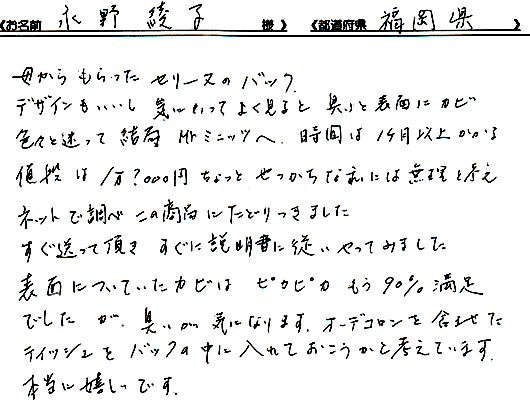 《お名前 永野 綾子 様》 《都道府県 福岡県 》
母からもらった セリーヌのバック
デザインもいいし 気に入って よく見ると 臭いと表面にカビ
色々と迷って 結局 Mrミニッツへ. 時間は 1ヶ月以上かかる
値段は 1万?000円 ちょっと せっかちな私には無理と考え
ネットで調べ この商品にたどりつきました
すぐ送って頂き すぐに説明書に従い やってみました
表面についていたカビは ピカピカ もう90%満足
でしたが、臭いが気になります. オーデコロンを含ませた
ティッシュを バックの中に入れておこうかと考えています.
本当に嬉しいです.